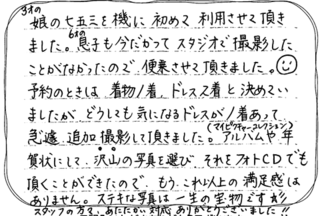 3才の
娘の七五三を機に初めて利用させて頂き
ました。6才の息子も今だかつてスタジオで撮影した
ことがなかったので、便乗させて頂きました。
予約のときは着物1着、ドレス2着と決めてい
ましたが、どうしても気になるドレスが1着あって
急遽追加撮影して頂きました。アルバムや年
(マイピクチャーコレクション)
賀状にして、沢山の写真を選び それをフォトCDでも
頂くことができたので、もう、これ以上の満足感は
ありません。ステキな写真は一生の宝物ですね
スタッフの方々、あたたかい対応ありがとうございました!!